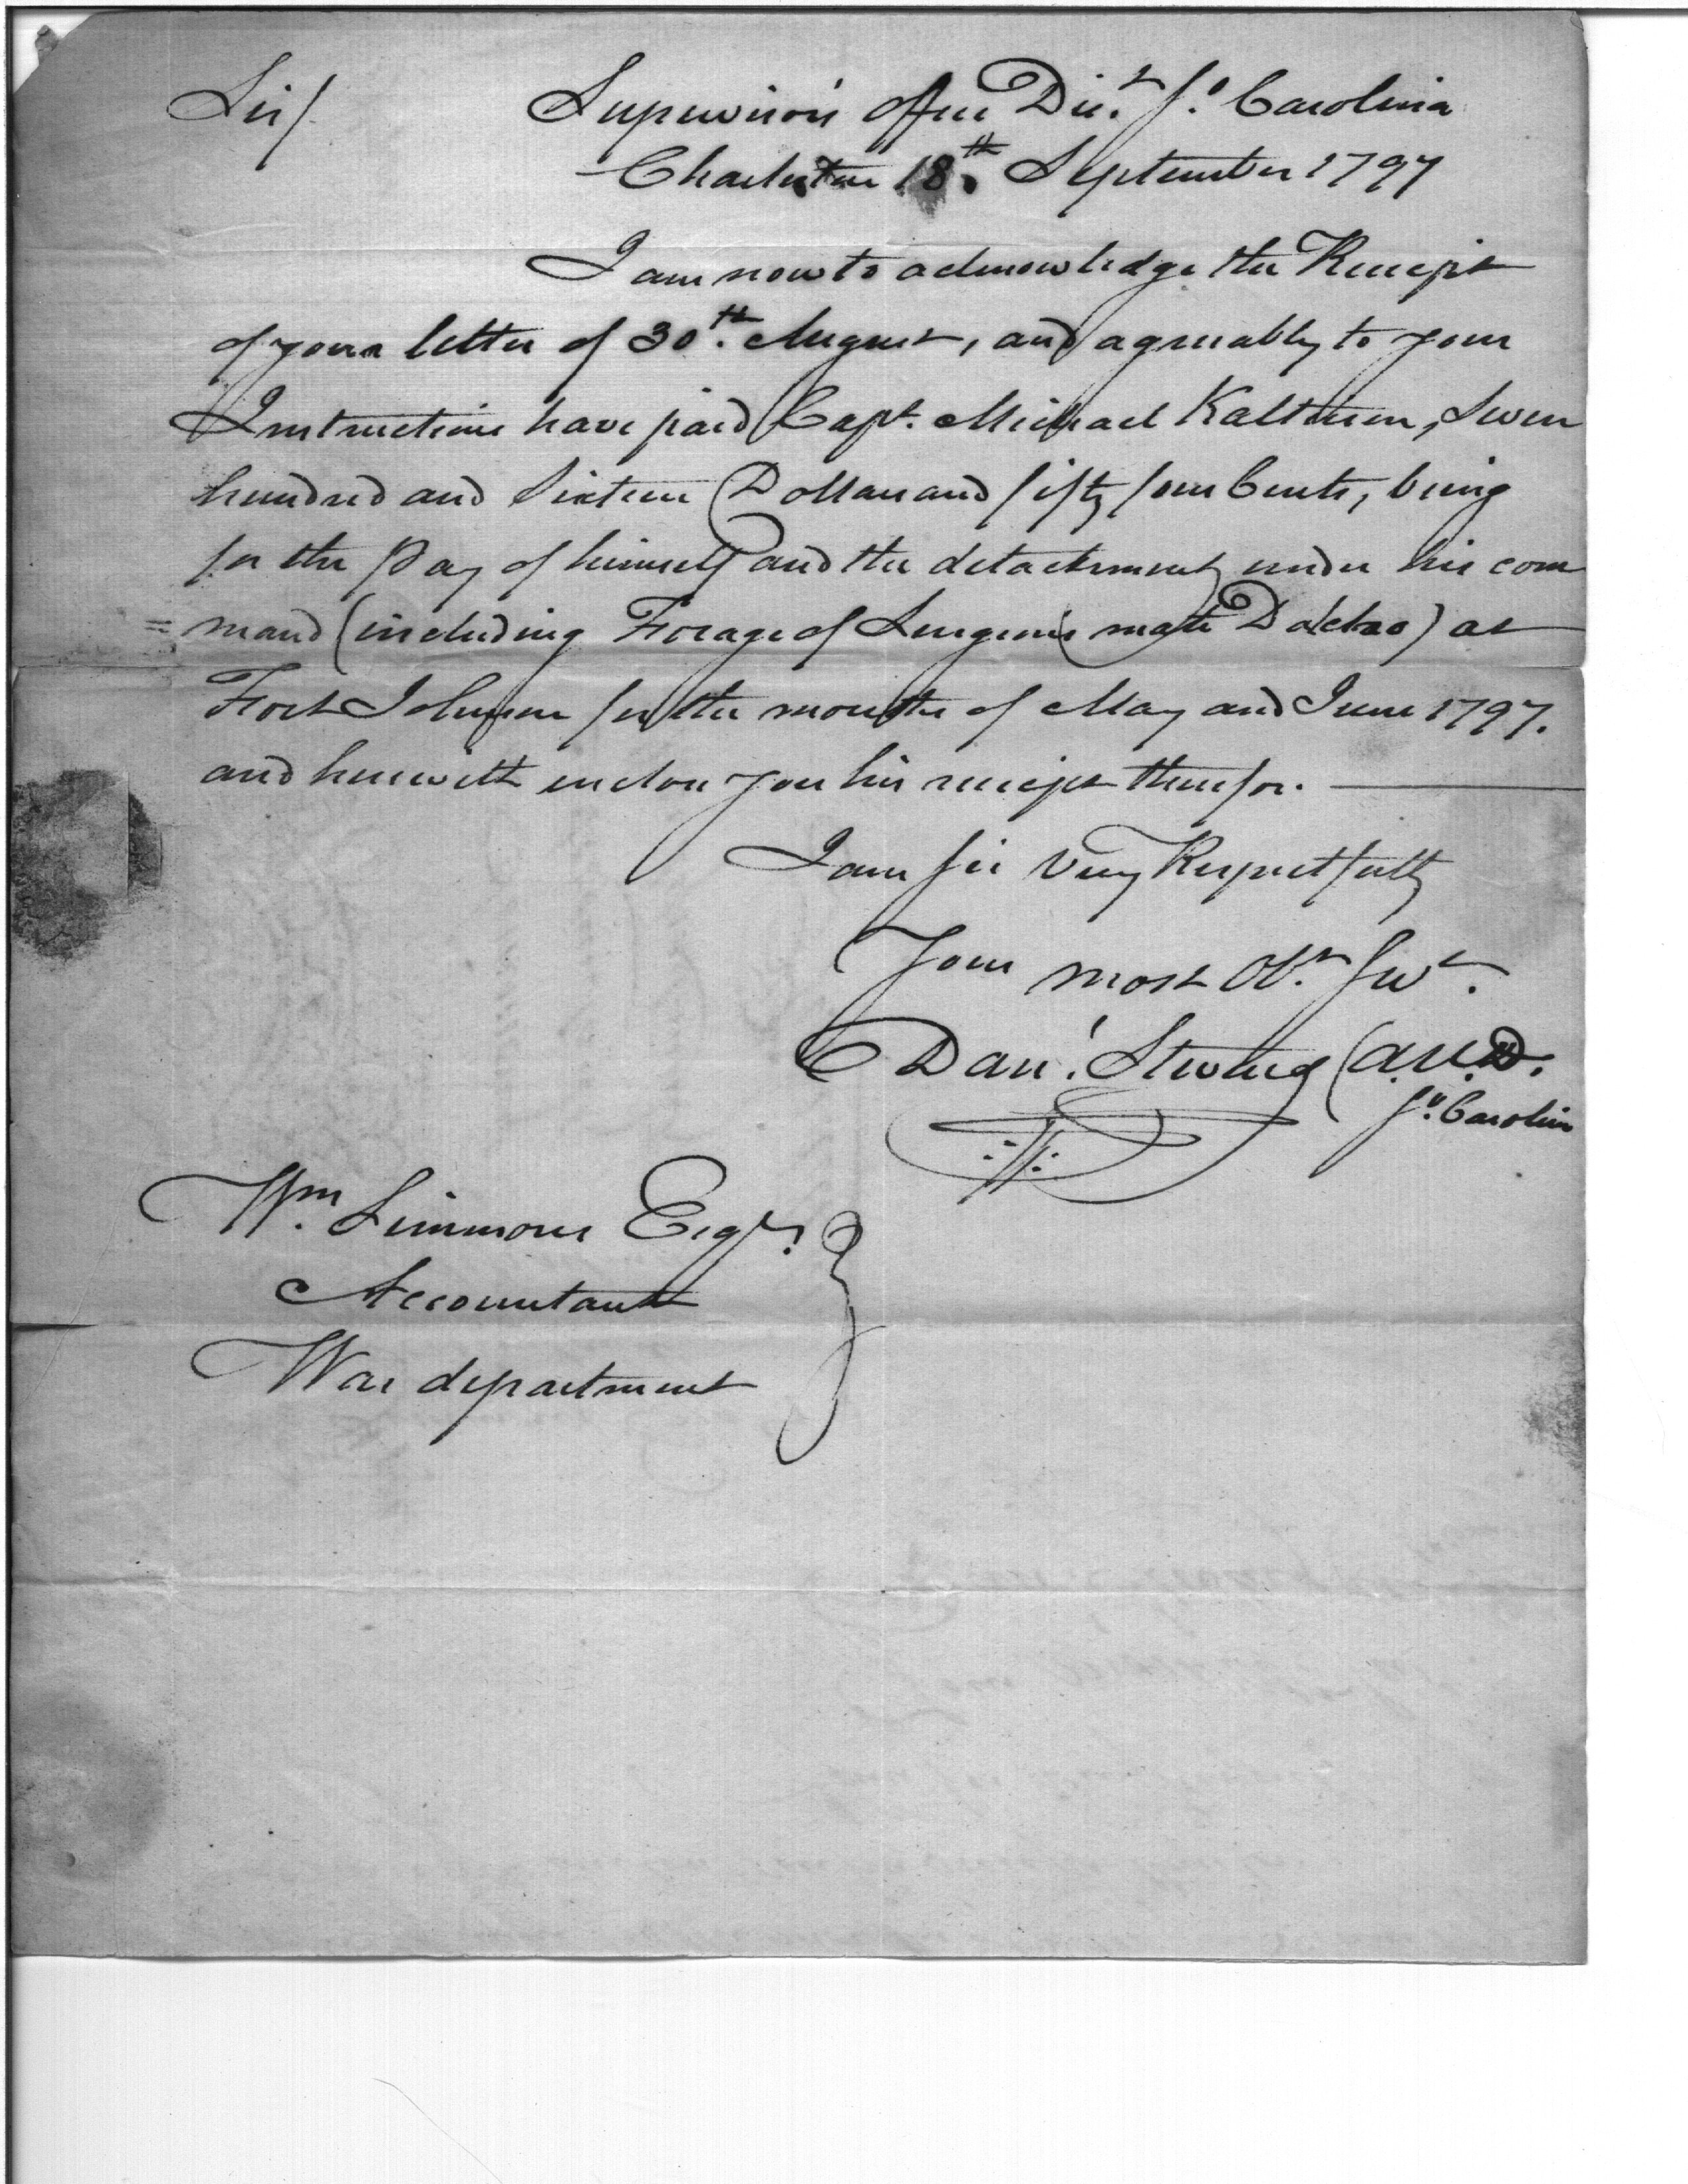 Sir/ Supervisor's Office Dis.t So. Carolina
Charleston 18th. September 1797
I am now to acknowledge the Receipt
of your letter of 30th. August, and agreeably to your
Instructions have paid Capt. Michael Kalteisen, Seven
hundred and Sixteen Dollars and fifty four Cents, being
for the Pay of himself and the detachment under his com
= mand (including Forage of Surgeons mate ) at
Fort Johnson for the months of May and June 1797.
and herewith enclose you his receipt therefor.
I am Sir Very Respectfully
Your most Obt. Servt.
Danl. Stevens
So. Carolina
Wm. Simmons Esqr.
Accountant
War department